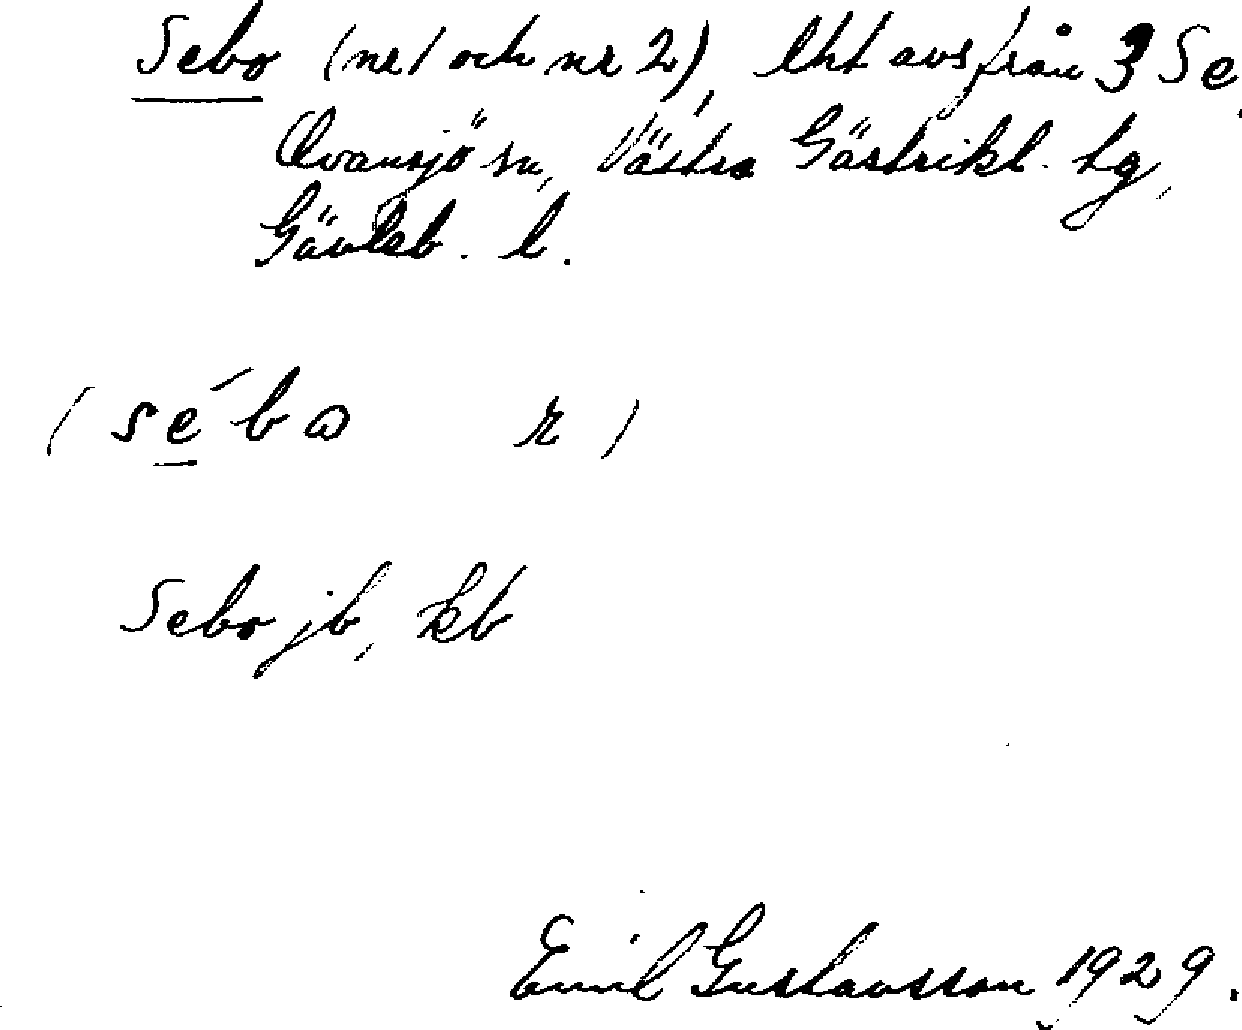 Sebo (nr 1 och nr 2), lht avs från 3 Se,
Ovansjö sn, Västra Gästrikl. tg,
Gävleb. l.
( se´bω r )
Sebo jb, kb
Emil Gustavsson 1929.